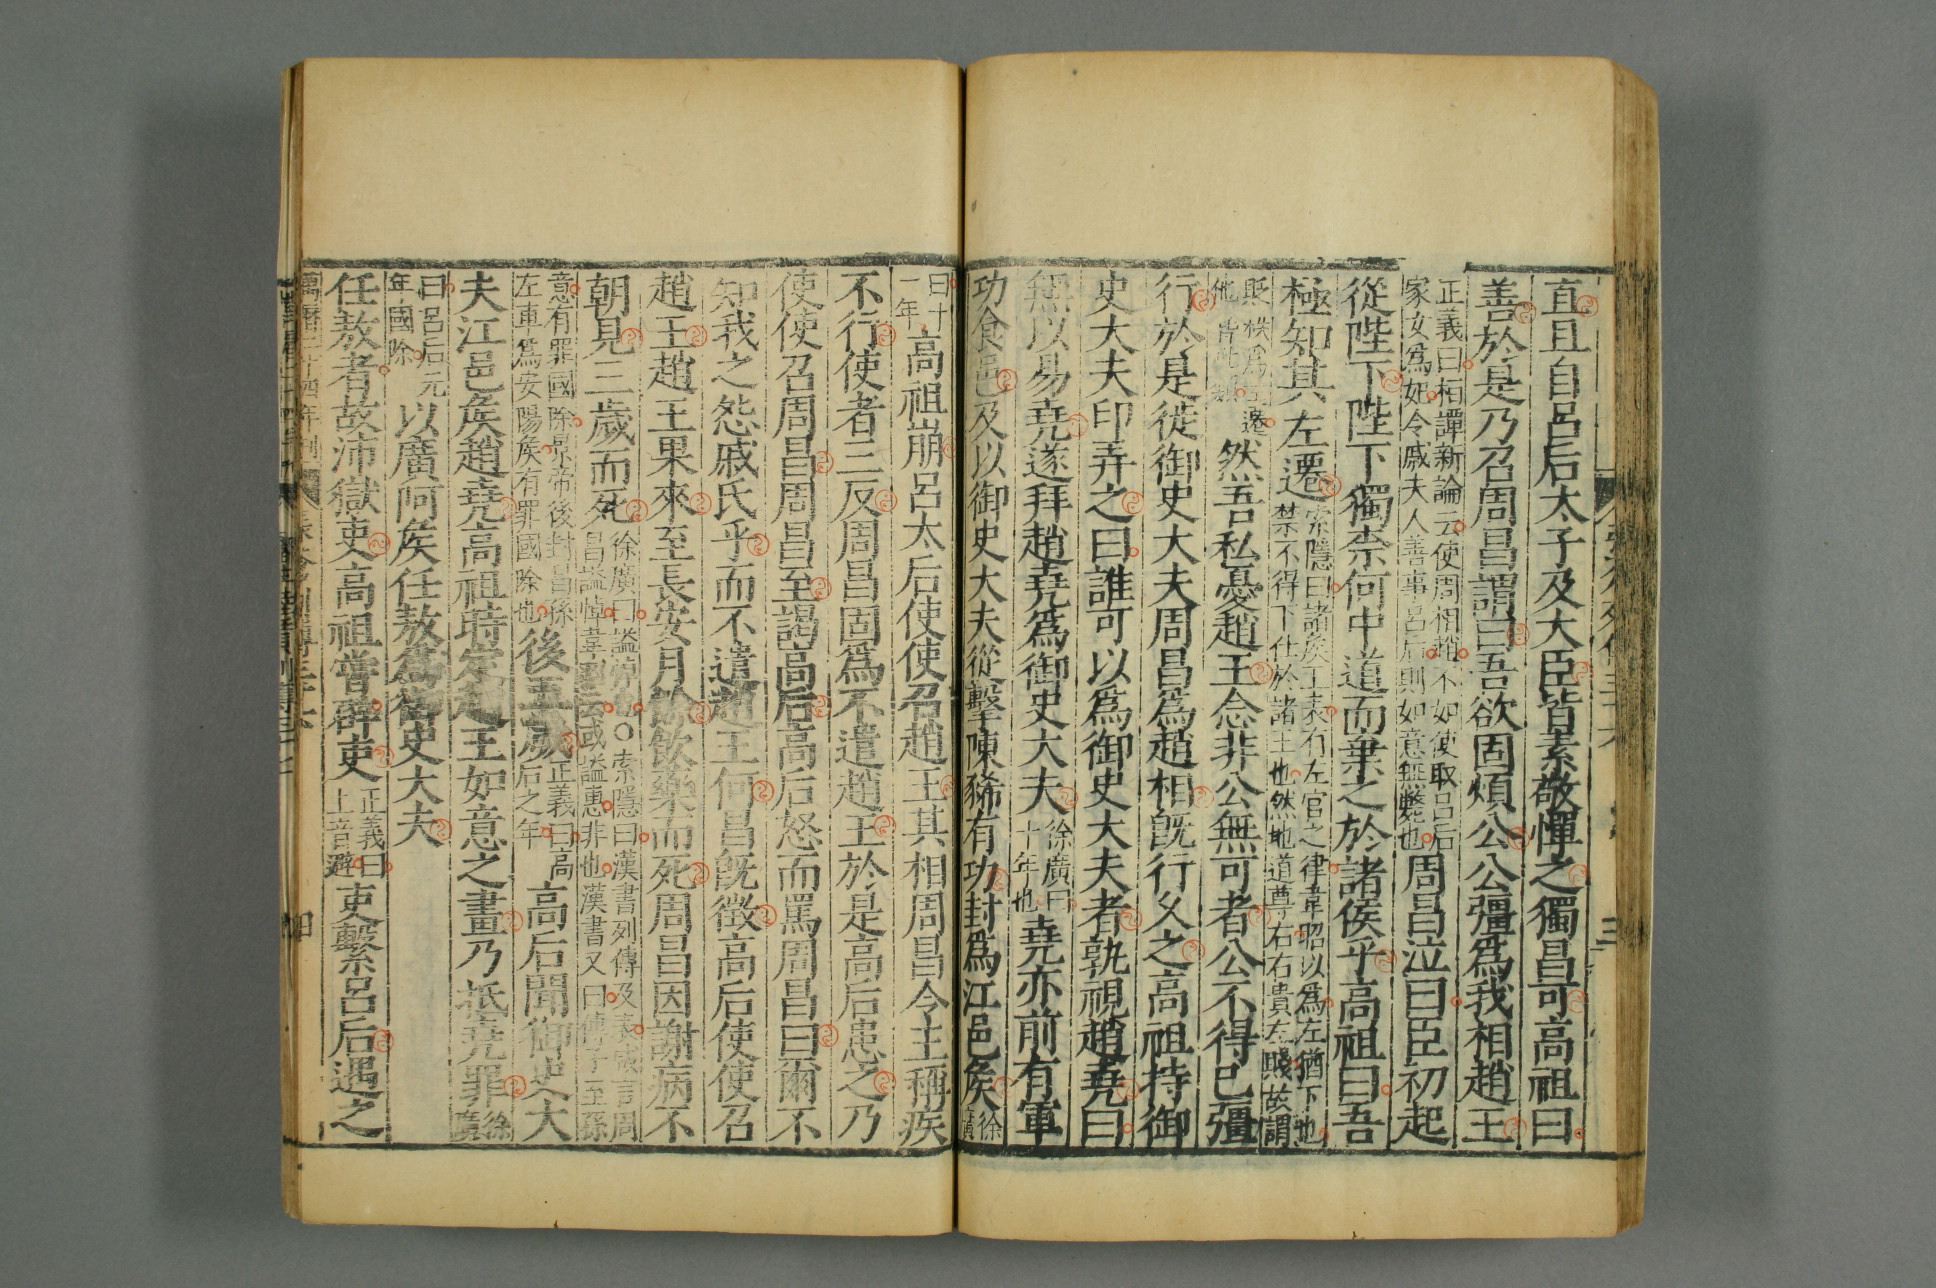 直且自呂后太子及大臣皆素敬憚之獨昌可高祖曰
善於是乃召周昌謂曰吾欲固煩公公彊爲我相趙王
正義曰桓譚新論云使周相趙不如使取呂后
家女爲妃令戚夫人善事呂后則如意無斃也
周昌泣曰臣初起
從陛下陛下獨柰何中道而棄之於諸侯乎高祖曰吾
極知其左遷
索隱曰諸侯王表有左官之律韋昭以爲左猶下也
禁不得下仕於諸王也然地道尊右右貴左賤故謂
貶秩爲左遷
他皆此類
然吾私憂趙王念非公無可者公不得已彊
行於是徙御史大夫周昌爲趙相旣行久之高祖持御
史大夫印弄之曰誰可以爲御史大夫者孰視趙堯曰
無以易堯遂拜趙堯爲御史大夫
徐廣曰
十年也
堯亦前有軍
功食邑及以御史大夫從擊陳豨有功封爲江邑侯
徐廣
曰十
一年
高祖崩呂太后使使召趙王其相周昌令王稱疾
不行使者三反周昌固爲不遣趙王於是高后患之乃
使使召周昌周昌至謁高后高后怒而罵周昌曰爾不
知我之怨戚氏乎而不遣趙王何昌旣徵高后使使召
趙王趙王果來至長安月餘飲藥而死周昌因謝病不
朝見三歲而死
徐廣曰謚悼也○索隱曰漢書列傳及表咸言周
昌謚悼韋昭云或謚惠非也漢書又曰傳子至孫
意有罪國除景帝後封昌孫
左車爲安陽侯有罪國除也
後五歲
正義曰高
后之年
高后聞御史大
夫江邑侯趙堯高祖時定趙王如意之畫乃抵堯罪
徐廣
曰呂后元
年國除
以廣阿侯任敖爲御史大夫
任敖者故沛獄吏高祖嘗辟吏
正義曰
上音避
吏繫呂后遇之